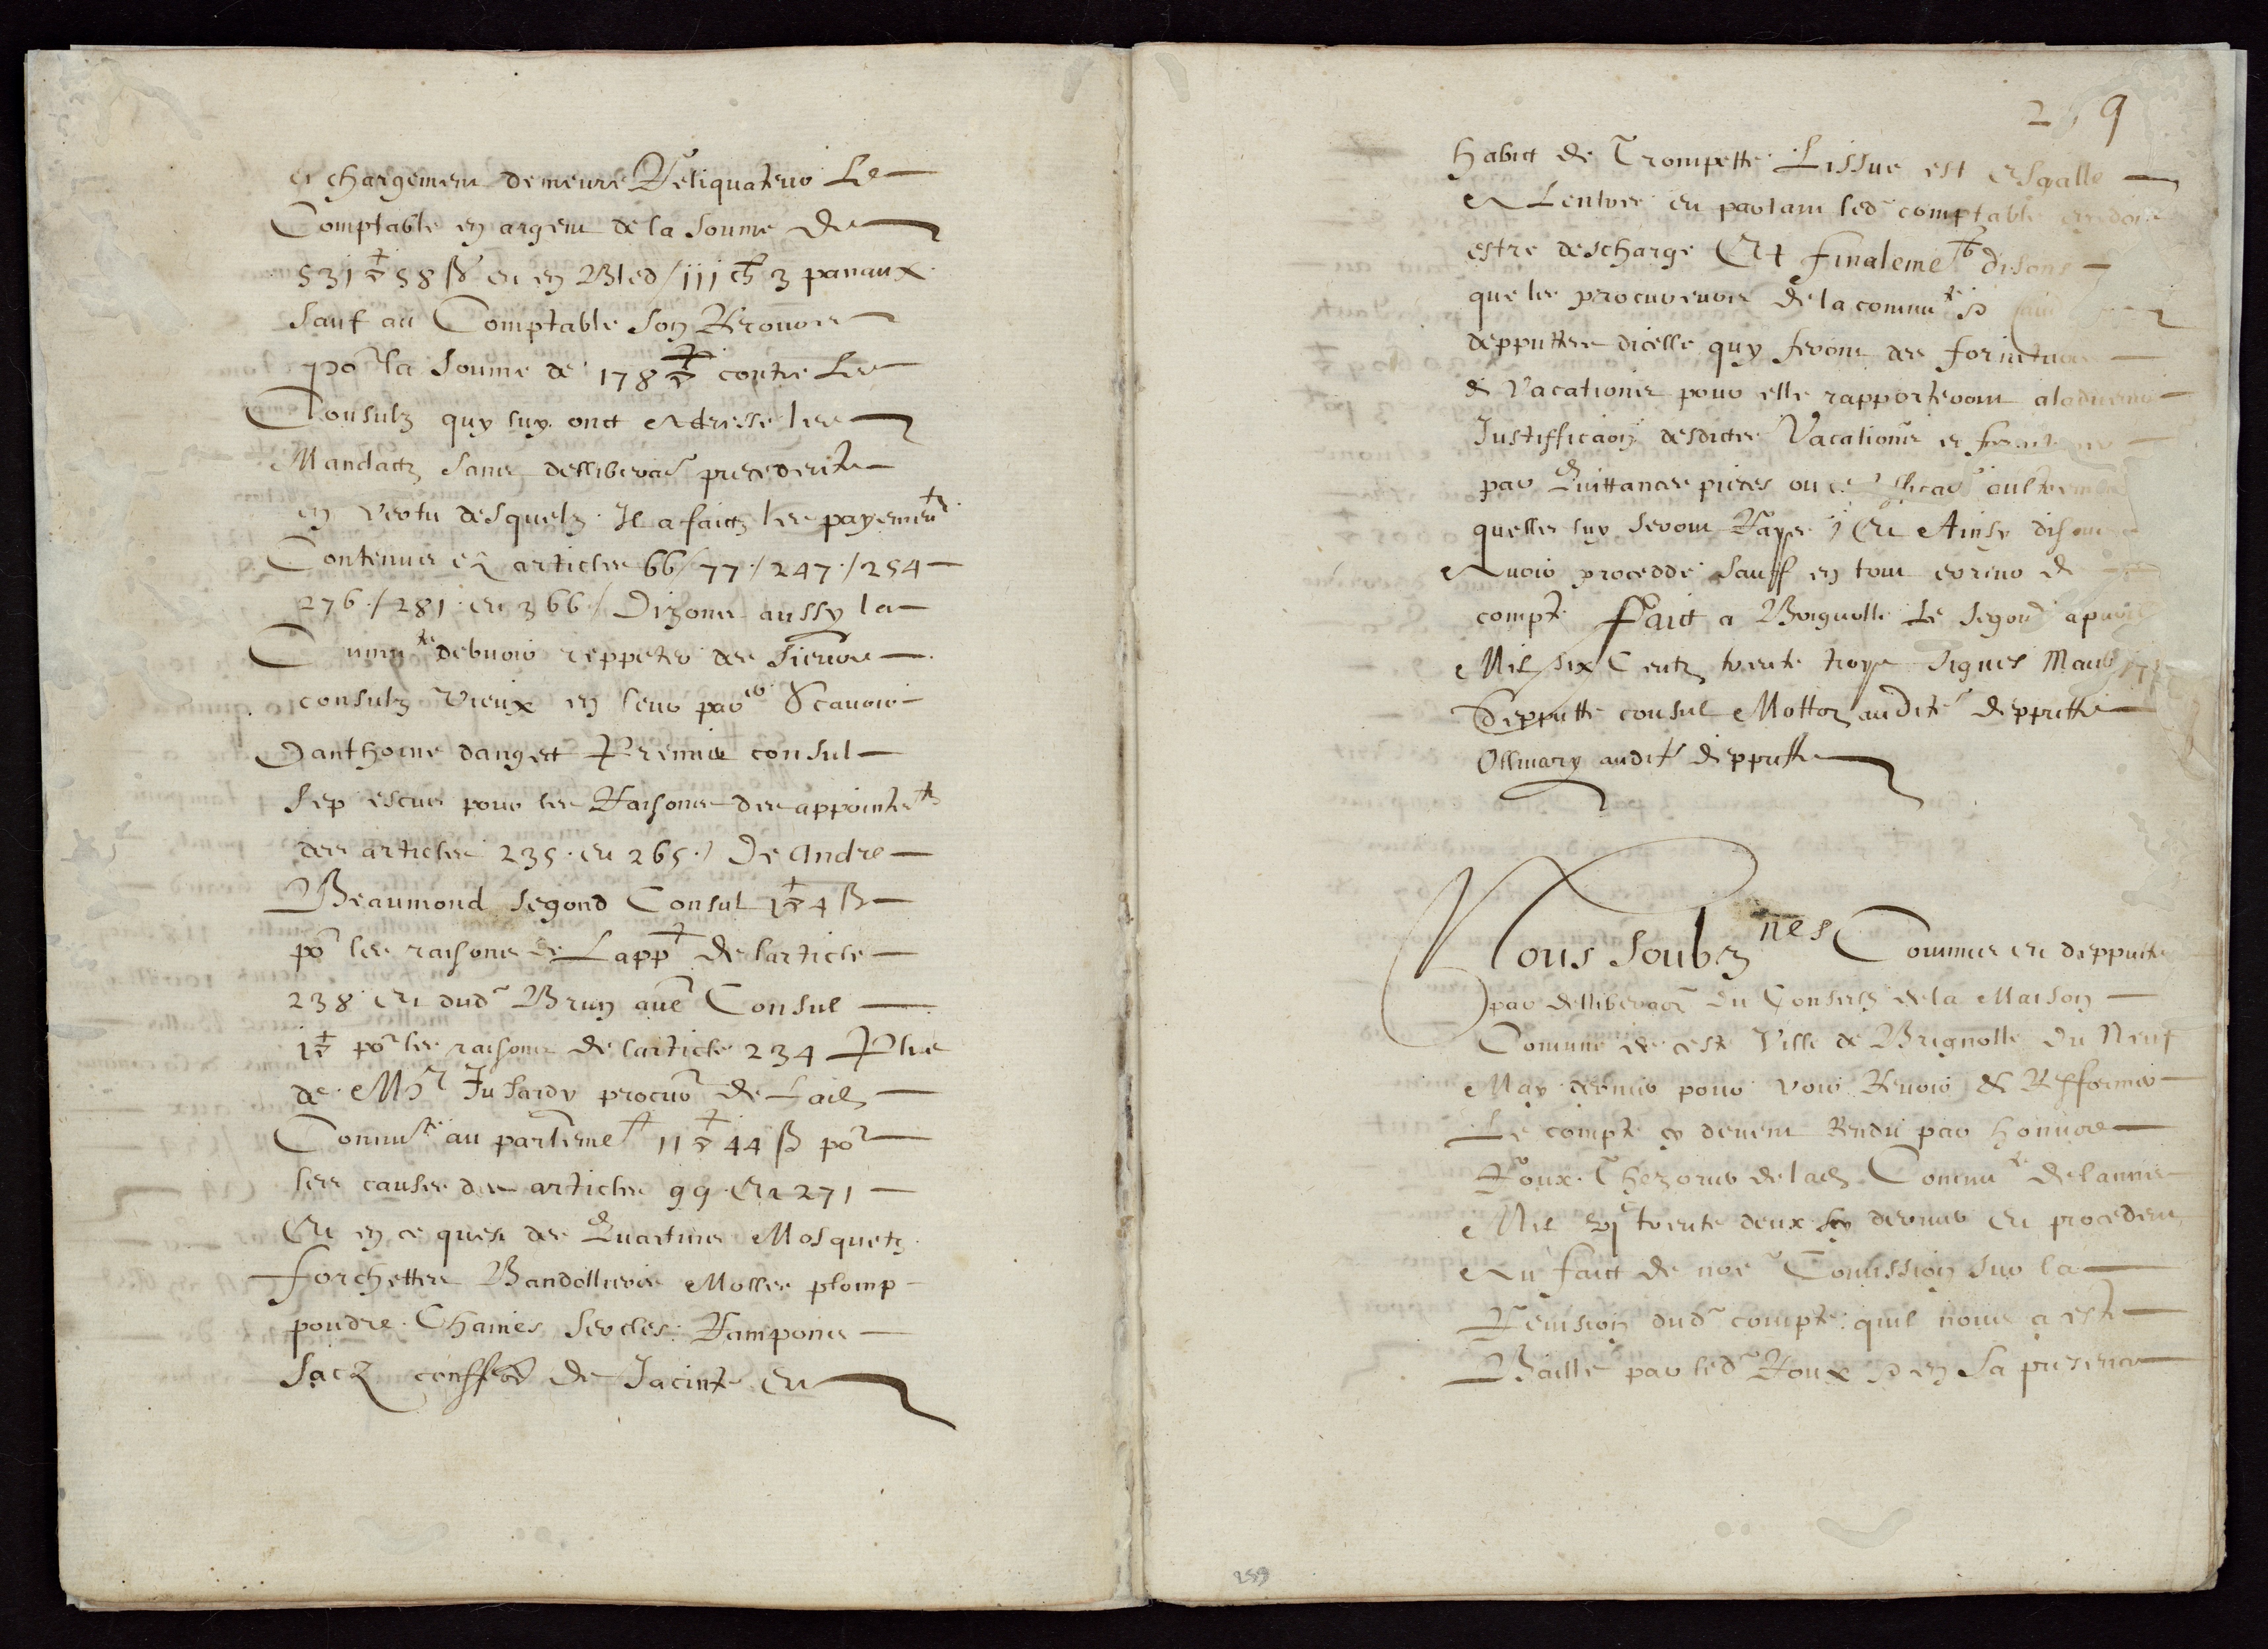 et chargement demeure Reliquateur Le
Comptable en argent de la somme de
531 58 ß et en Bled / iij ch 3 panaux
sauf au Comptable son Recours
por la somme de 178 contre Les
Consulz quy luy onct Adresse les
Mandactz sans delliberaõ precedente
en vertu desquelz Il a faictz les payementz
Contenus ez articles 66 / 77 / 247 / 254
276 / 281 et 366 / Dizons aussy la
Commte debvoir reppeter des sieurs
consulz vieux en leur par Scavoir
Danthoine danget Premier consul
sep escus pour les Raisons des appointetz
des articles 235 et 265 / De Andre
Beaumond segond Consul 1 4 ß
por les raisons de Lappt de larticle
238 et dud Brun aue Consul
1 por les raisons de larticle 234 Plus
de Me Jusardy procur de Lad
Commte au parlemet 11 44 ß por
les causes des articles 99 et 271
Et en ce quest des Quartines Mosquetz
forchettes Bandollieres Molles plomp
poudre Chaines sercles Tampons
sacz de Jacinte et
259
habit de Trompette Lissue est esgalle
A Lentree et partant led comptable en doit
estre descharge Et finalemet disons
que les procureurs de la commte
depputtes dicelle quy feront des fornitures
& vacations pour elle rapporteront aladvenir
Justifficaon desdictes Vacations et fornitures
par Quittances pieces ou aultrement
quelles luy seront Rayes / Et Ainsy disons
Avoir procedde sauff en tout erreur de
compte Faict a Brignolle Le segond apvril
Mil six Centz trente troys signes Maul
depputte consul Motton audite depputte
Ollivary audit depputte
Nous soubznes Commis et depputes
par delliberaon du Conseilz de la Maison
Comune de ceste Ville de Brignolle du Neuf
May dernier pour voir Revoir & Refformer
Le compte cy devent Rendu par Honnore
Roux Thezorier de lad Commte de lannee
Mil vjc trente deux dernier et procedent
Au faict de nre Comission sur la
Revision dud compte quil nous a este
Baille par led Roux en sa presence
259